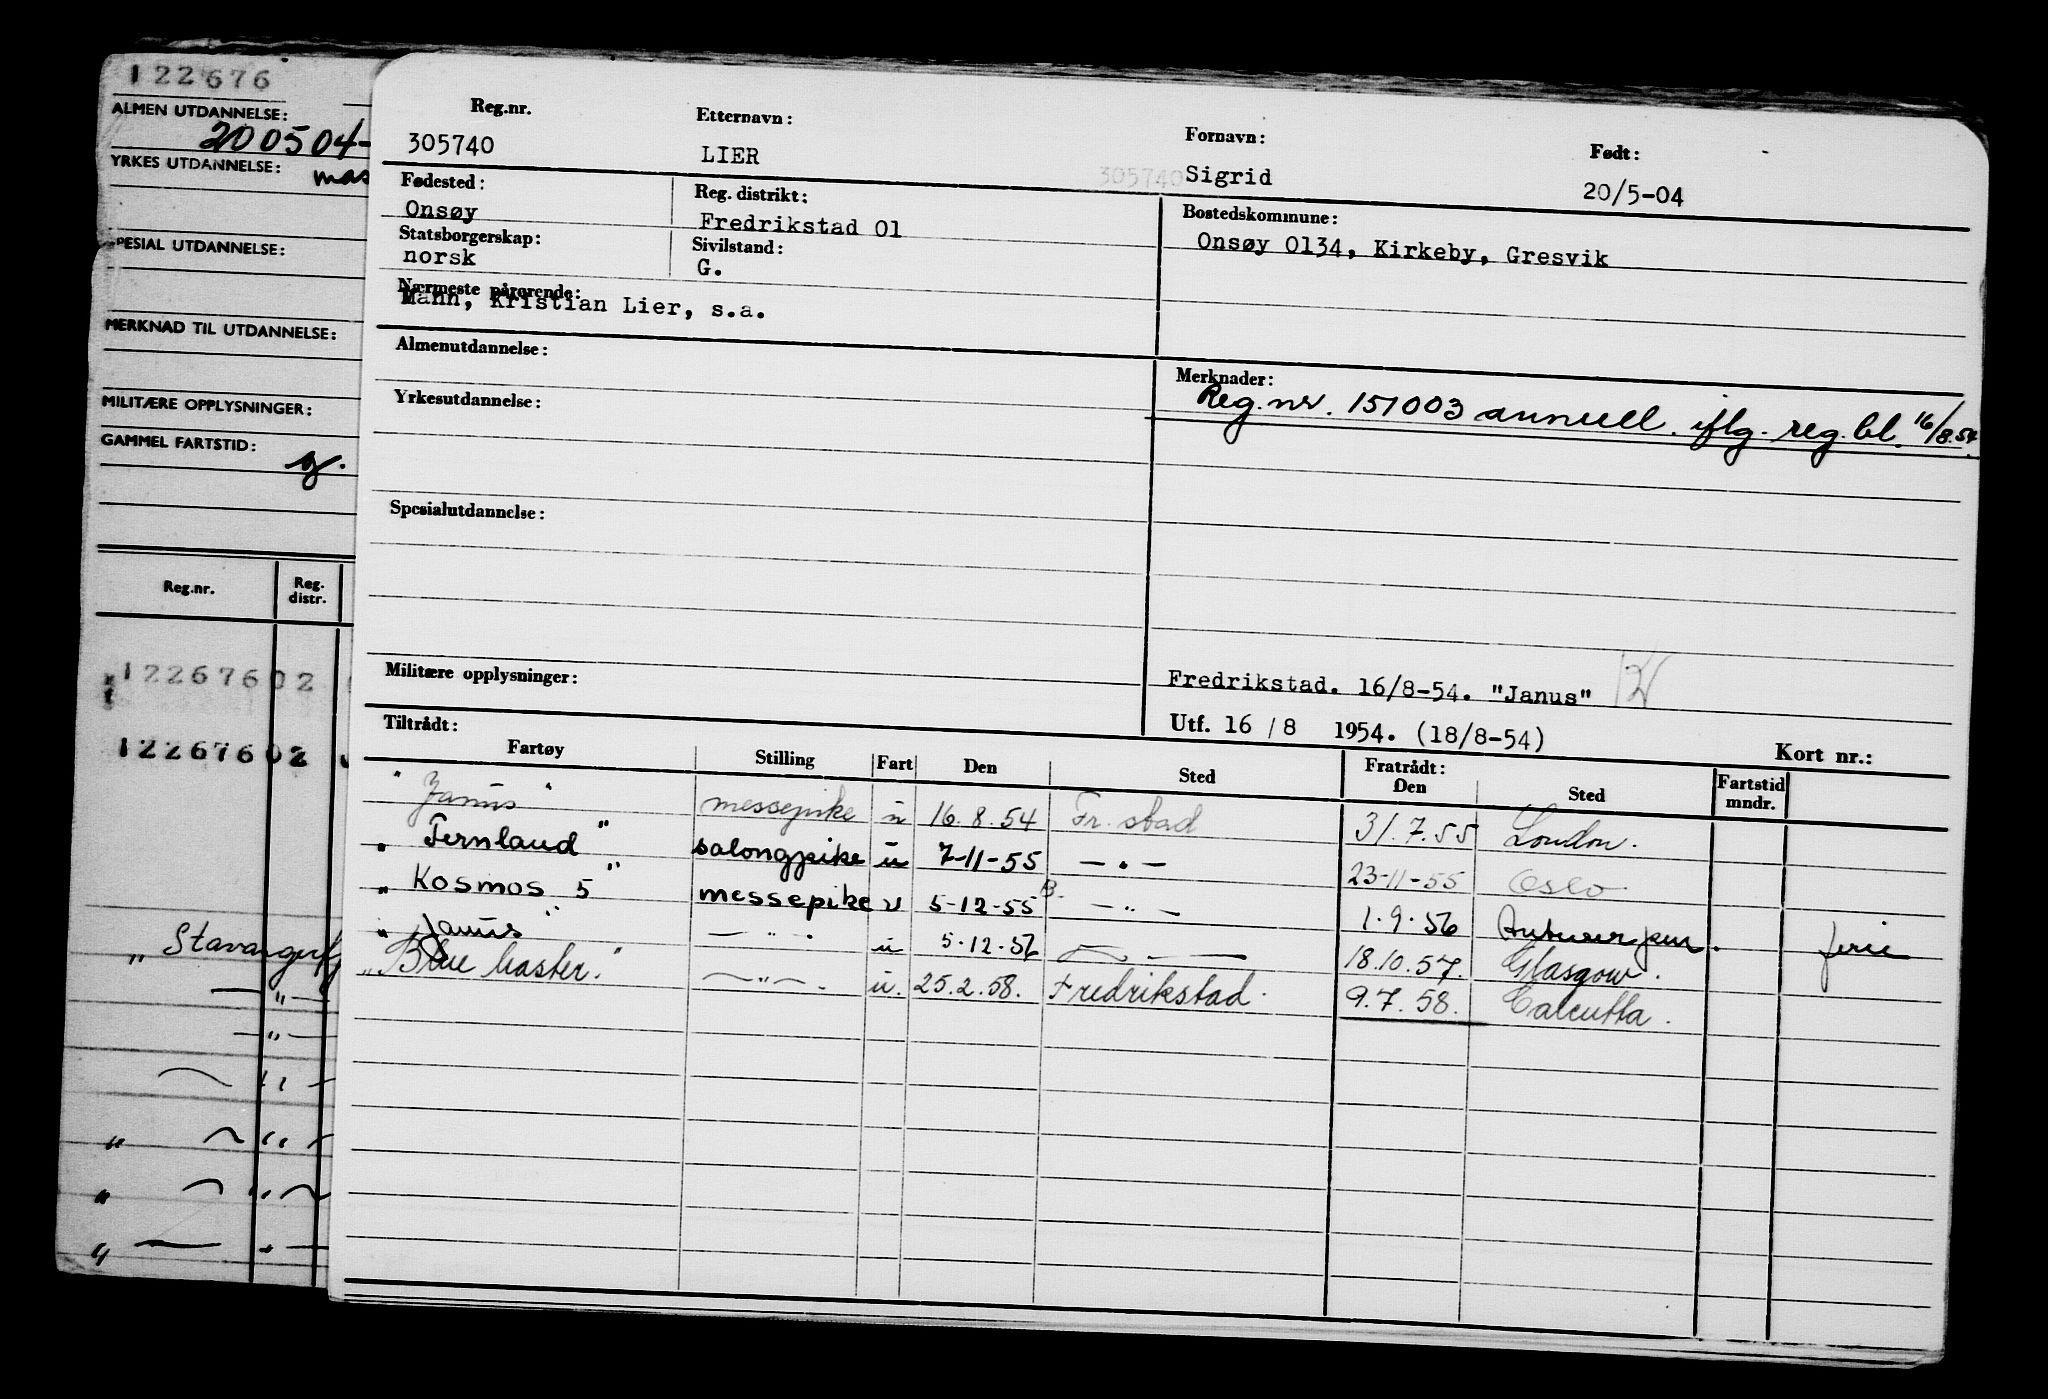 122676
ALMEN UTDANNELSE:
200504-
YRKES UTDANNELSE: mas
PESIAL UTDANNELSE:
MERKNAD TIL UTDANNELSE:
MILITÆRE OPPLYSNINGER:
GAMMEL FARTSTID:
Reg.nr. Reg. distr.
12267602
12267602
„ Stavangerfj
— „ —
— „ —
Reg.nr. Etternavn: Fornavn: Født:
305740 LIER 305740 Sigrid 20/5-04
Fødested: Reg. distrikt: Bostedskommune:
Onsøy Fredrikstad 01 Onsøy 0134, Kirkeby, Gresvik
Statsborgerskap: Sivilstand:
norsk G.
Nærmeste pårørende:
Mann, Kristian Lier, s.a.
Almenutdannelse: Merknader:
Reg.nr. 151003 annull. iflg. reg.bl. 16/8.54.
Yrkesutdannelse:
Spesialutdannelse:
Militære opplysninger: Fredrikstad. 16/8-54. "Janus"
Utf. 16 / 8 1954. (18/8-54) Kort nr.:
Tiltrådt: Fratrådt:
Fartøy Stilling Fart Den Sted Den Sted Fartstid mndr.
"Janus" messepike u 16.8.54 Fr. stad 31.7.55 London.
"Fernland" salongpike u 7-11-55 — " — 23-11-55 Oslo
"Kosmos 5" messepike u 5-12-55 — " — 1.9.56 Antwerpen. ferie
"Janus" — " — u 5.12.56 — " — 18.10.57. Glasgow.
"Blue Master." — " — . u. 25.2.58. Fredrikstad. 9.7.58. Calcutta.